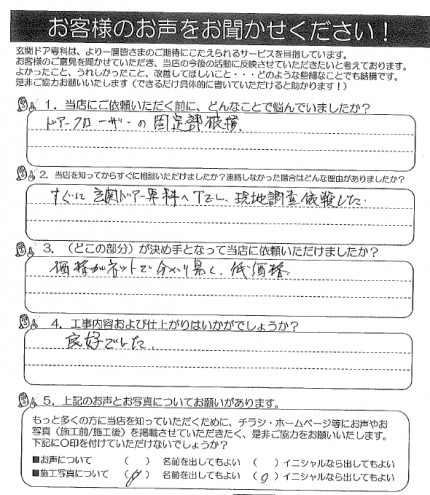 お客様のお声をお聞かせください!
玄関ドア専科は、より一層皆さまのご期待にこたえられるサービスを目指しています。
お客様のご意見を聞かせていただき、当店の今後の活動に反映させていただきたいと考えております。
よかったこと、うれしかったこと、改善してほしいこと・・・どのような些細なことでも結構です。
是非ご協力お願いいたします(できるだけ具体的に書いていただけると助かります!)
1. 当店にご依頼いただく前に、どんなことで悩んでいましたか?
ドアークローザーの固定部破損
2. 当店を知ってからすぐに相談いただけましたか?連絡しなかった場合はどんな理由がありましたか?
すぐに玄関ドアー専科へTELし、現地調査依頼した。
3. (どこの部分)が決め手となって当店に依頼いただけましたか?
価格がネットで分かり易く、低価格。
4. 工事内容および仕上がりはいかがでしょうか?
良好でした
5. 上記のお声とお写真についてお願いがあります。
もっと多くの方に当店を知っていただくために、チラシ・ホームページ等にお声やお
写真(施工前/施工後)を掲載させていただきたく、是非ご協力をお願いいたします。
下記に○印を付けていただけないでしょうか?
■お声について ( ) 名前を出してもよい ( ) イニシャルなら出してもよい
■施工写真について ( ) 名前を出してもよい (○) イニシャルなら出してもよい